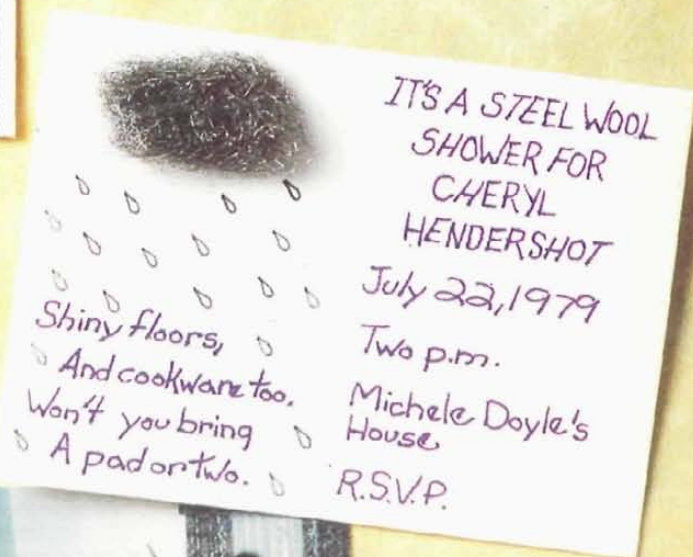 IT'S A STEEL WOOL
SHOWER FOR
CHERYL
HENDERSHOT
July 22, 1979
Two p.m.
Michele Doyle's
House
R.S.V.P.
Shiny floors,
And cookware too.
Won't you bring
A pad or two.